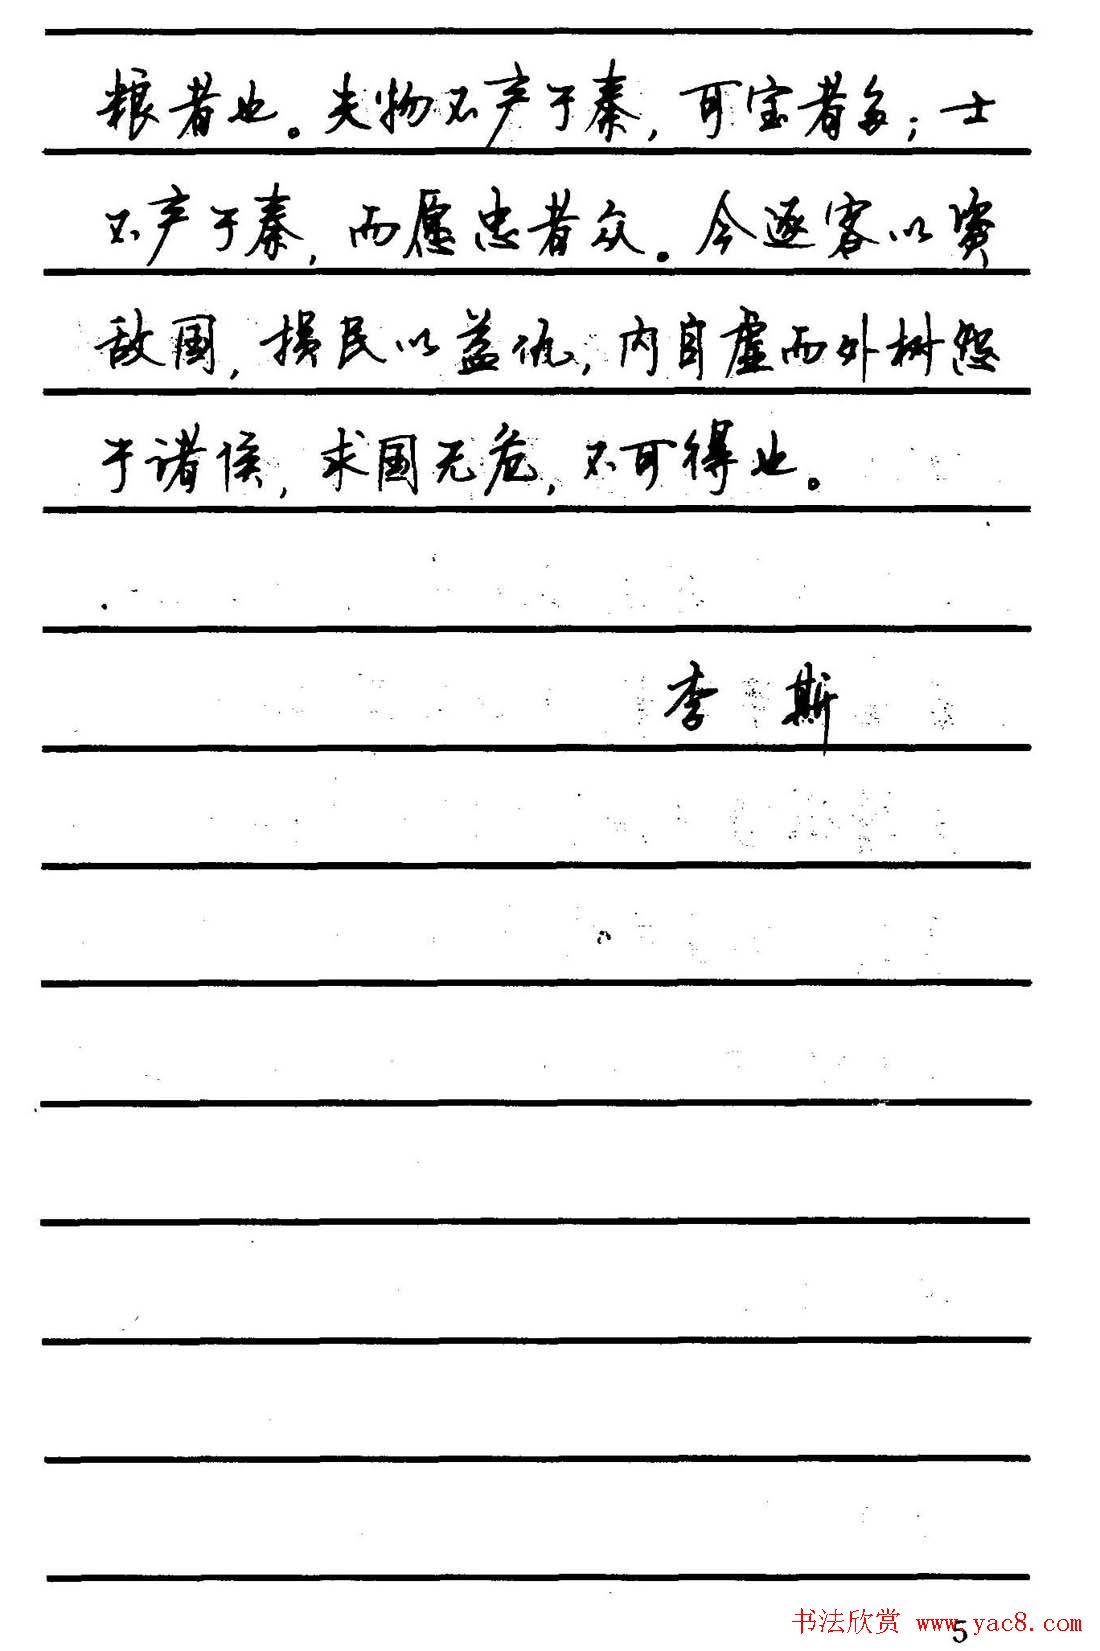 粮者也。夫物不产于秦，可宝者多；士
不产于秦，而愿忠者众。今逐客以资
敌国，损民以益仇，内自虚而外树怨
于诸侯，求国无危，不可得也。
李斯
书法欣赏 www.yac8.com
5